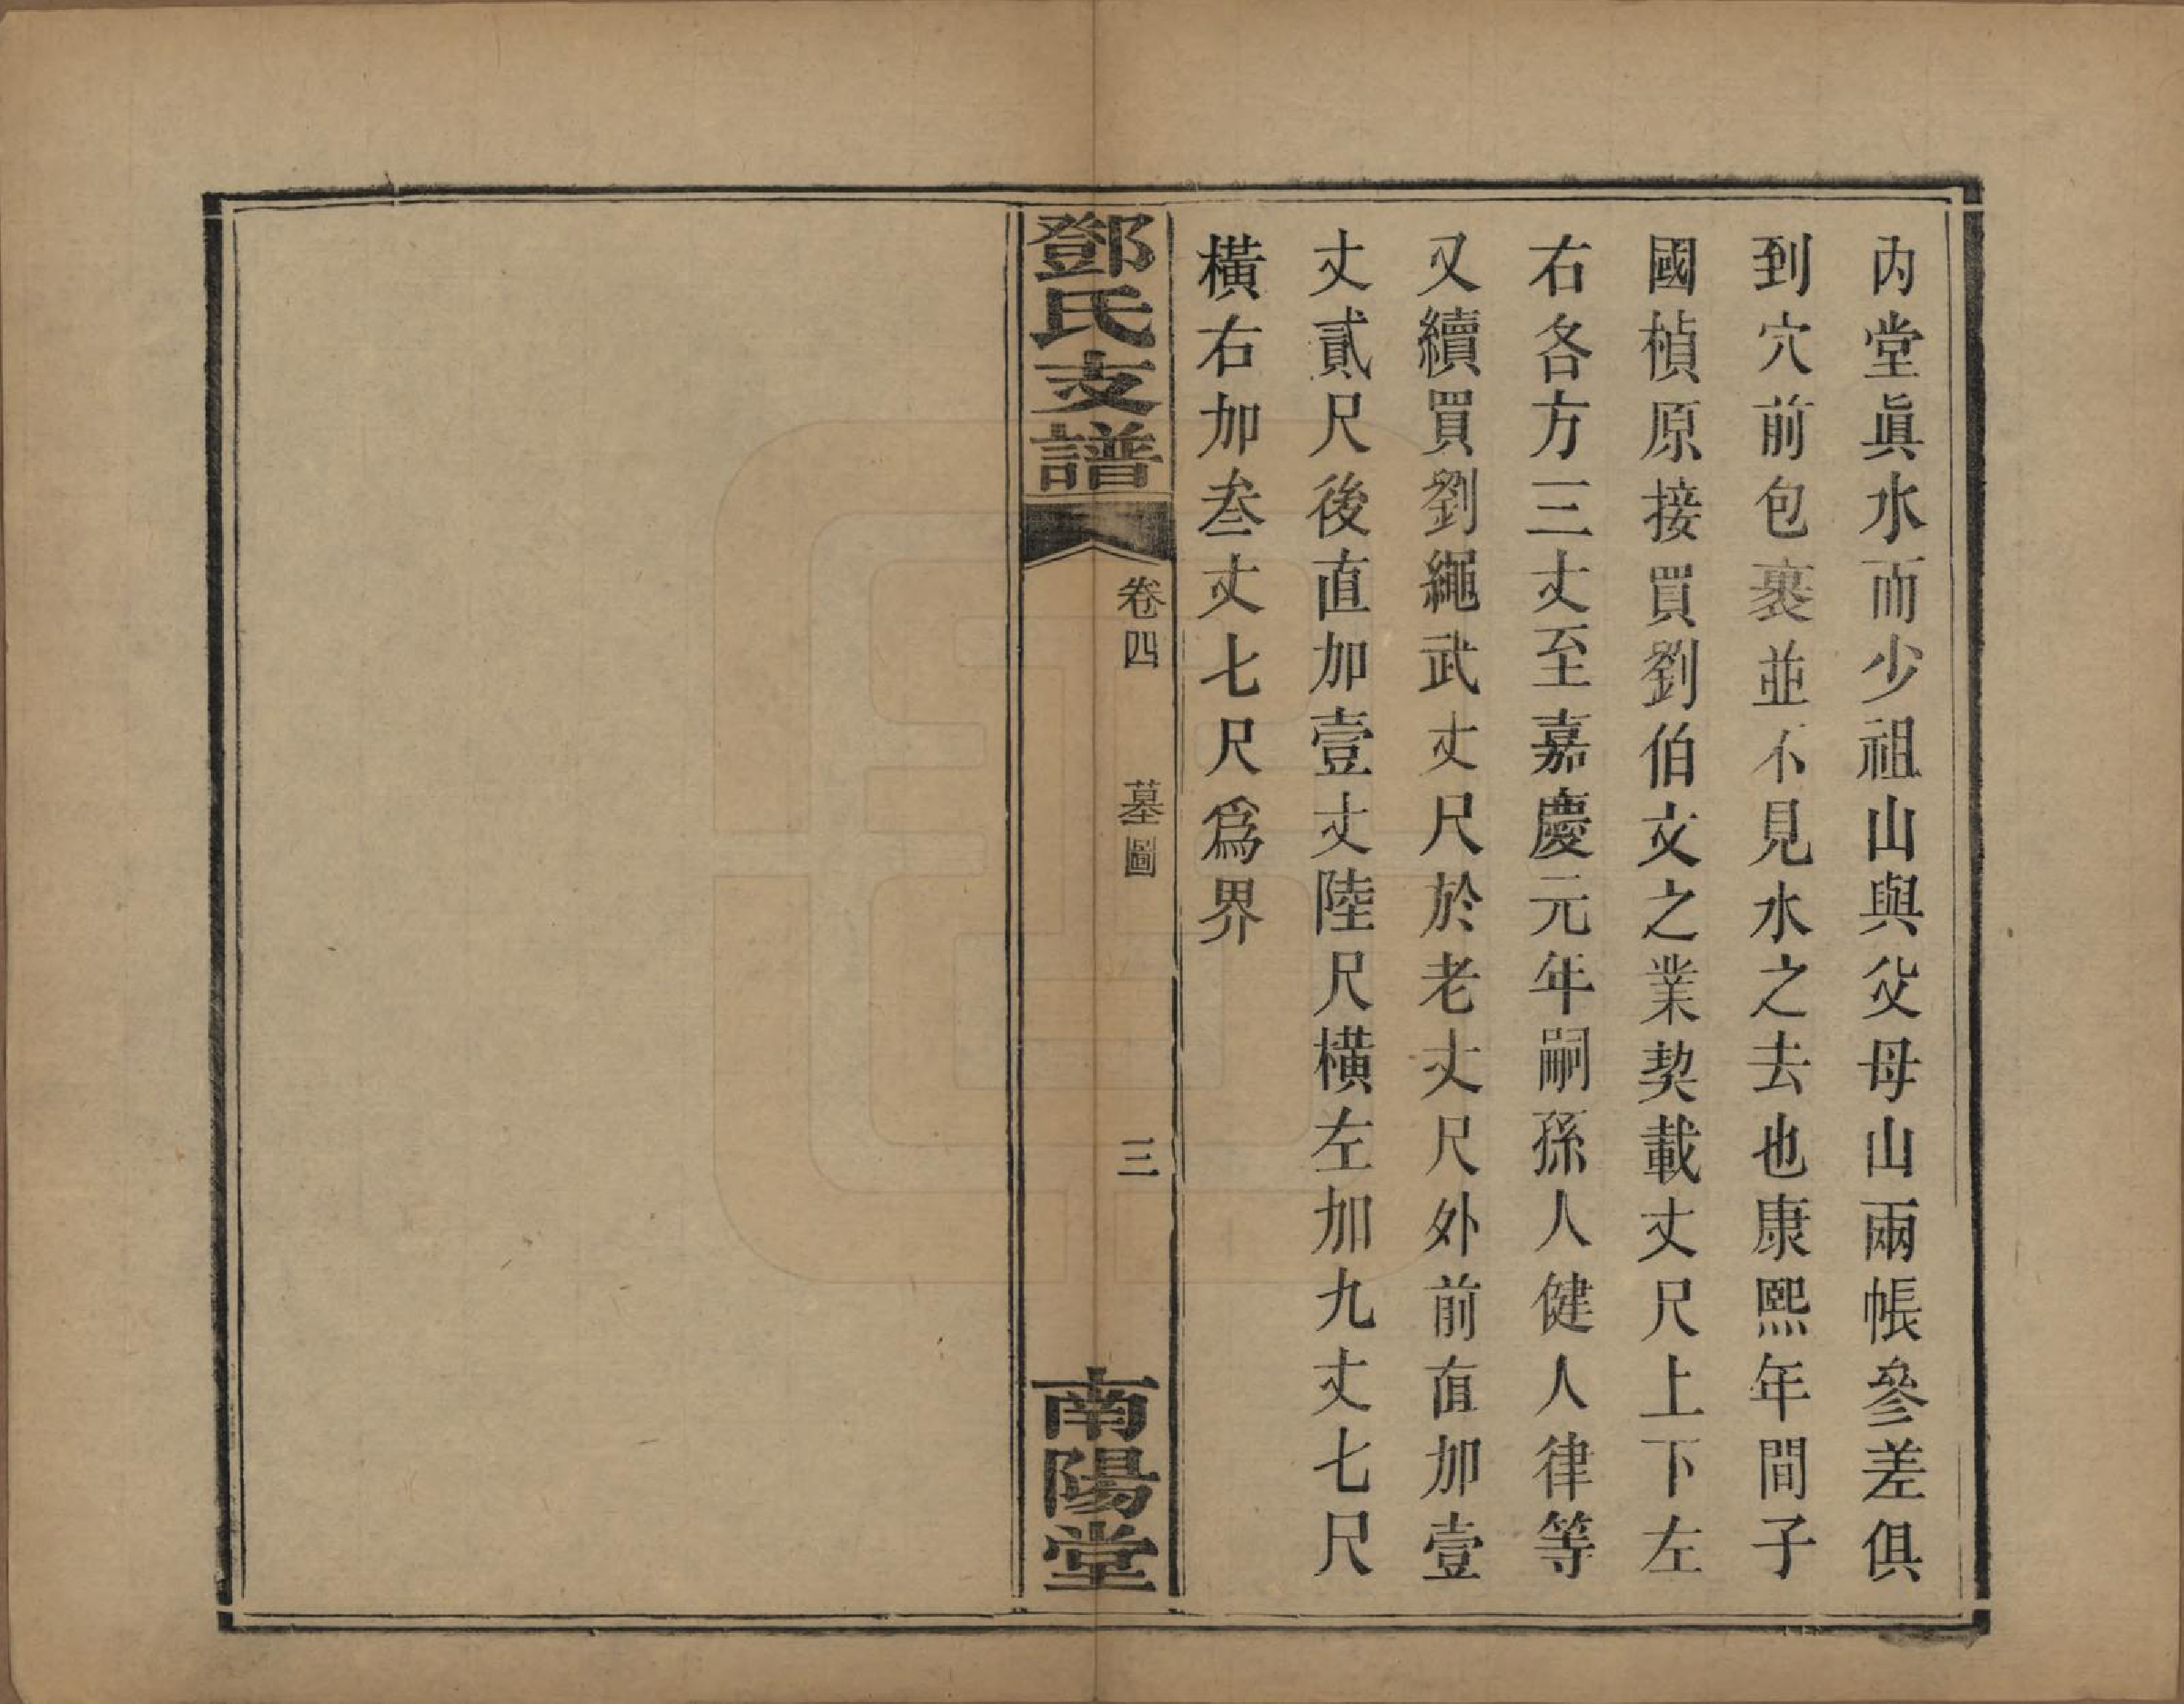 內堂眞水而少祖山與父母山兩帳參差俱
到穴前包裹並不見水之去也康熙年間子
國楨原接買劉伯文之業契載丈尺上下左
右各方三丈至嘉慶元年嗣孫人健人律等
又續買劉繩武丈尺於老丈尺外前直加壹
丈貳尺後直加壹丈陸尺橫左加九丈七尺
橫右加叁丈七尺爲界
鄧氏支譜
卷四
墓圖
三
南陽堂